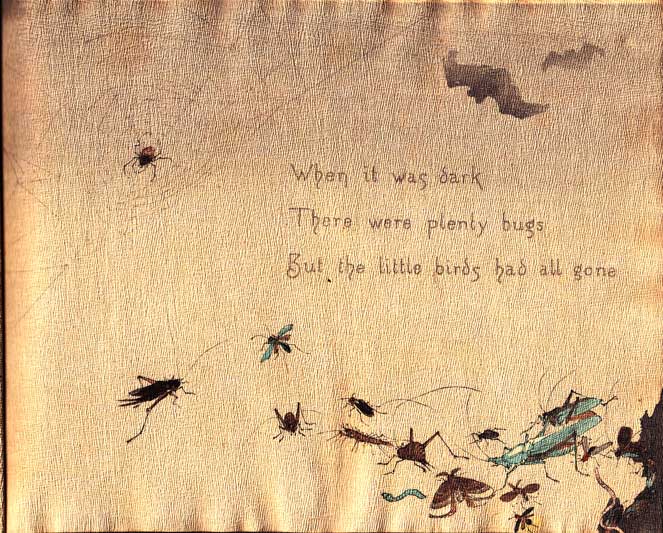 When it was dark
There were plenty bugs
But the little birds had all gone